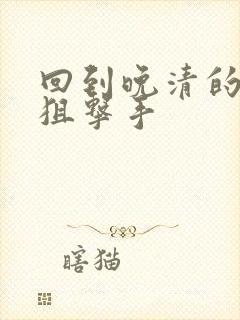 回到晚清的
狙擊手
瞎猫